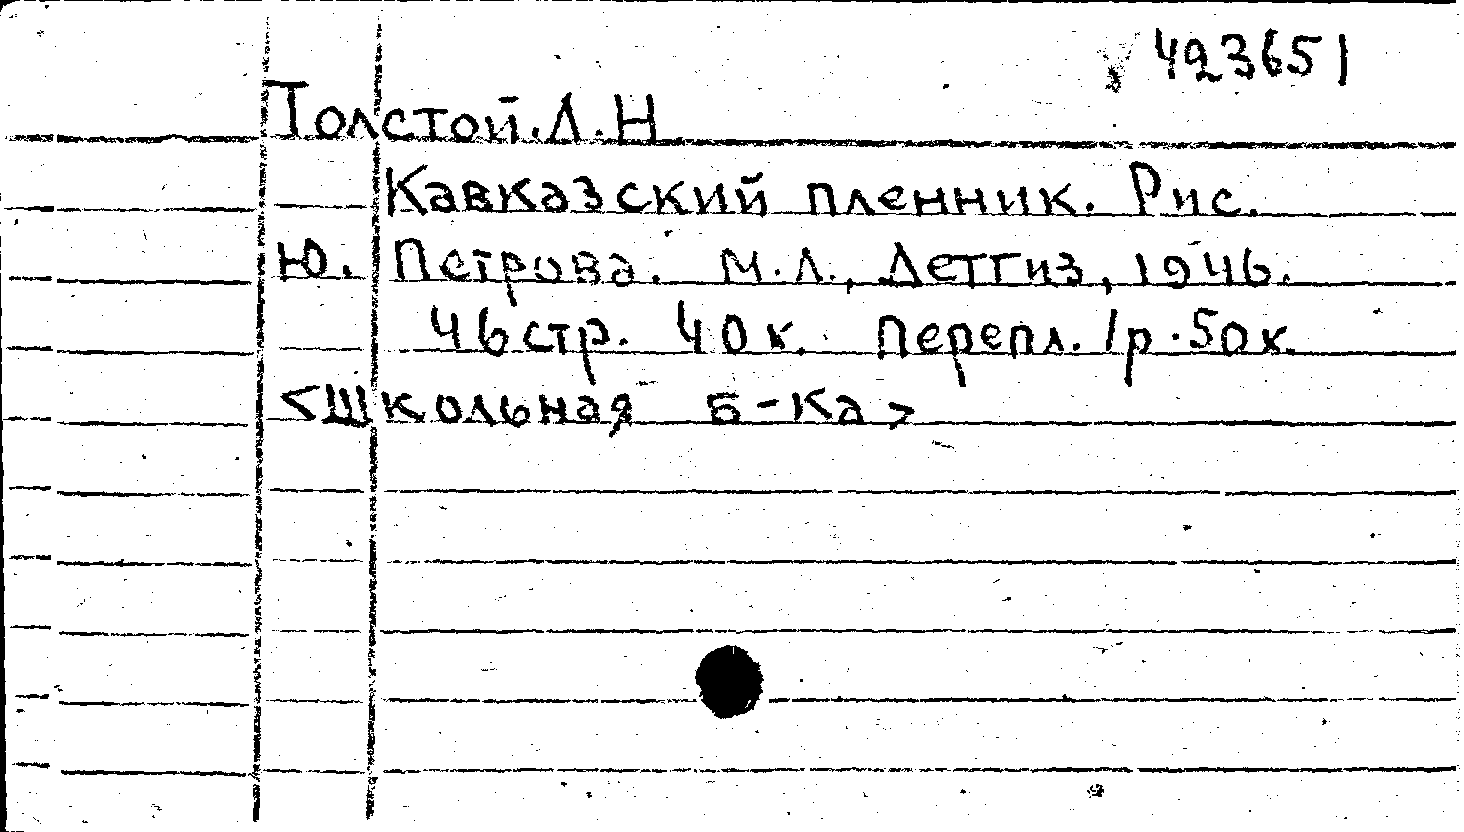 423651
Толстой.Л.Н.
Кавказский пленник. Рис.
Ю. Петрова. М.Л., Детгиз, 1946.
46 стр. 40 к. Перепл. 1р.50к.
<Школьная б-ка>